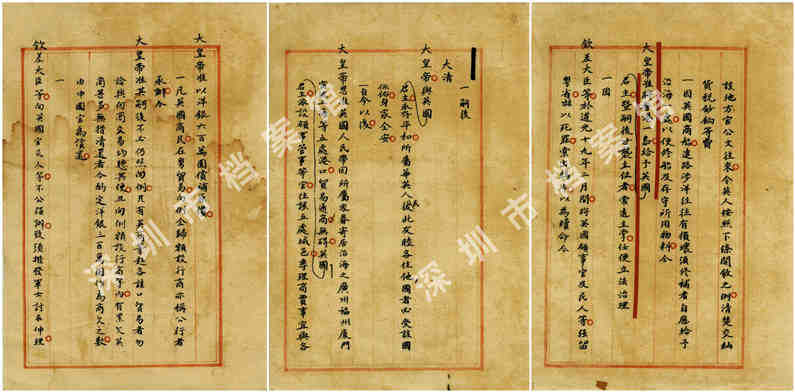 該地方官公文往來令英人按照下條開敘之例清楚交納
貨稅鈔餉等費
一因英國商船遠路涉洋往往有損壞須修補者自應給予
沿海一處以便修船及存守所用物料今
大皇帝准將香港一島給予英國
君主暨嗣後世襲主位者常遠主掌任便立法治理
一因
欽差大臣等於道光十九年二月間將英國領事官及民人等強留
粵省嚇以死罪索出鴉片以為贖命今
一嗣後
大清
大皇帝與英國
君主永存平和所屬華英人民彼此友睦各住他國者必受該國
保佑身家全安
一自今以後
大皇帝恩准英國人民帶同所屬家眷寄居沿海之廣州福州廈門
寧波上海等五處港口貿易通商無礙英國
君主派設領事管事等官住該五處城邑專理商賈事宜與各
大皇帝准以洋銀六百萬圓償補原價
一凡英國商民在粵貿易向例全歸額設行商亦稱公行者
承辦今
大皇帝准其嗣後不必仍照向例凡有英商等赴各該口貿易者勿
論與何商交易均聽其便且向例額設行商等內有累欠英
商甚多無措清還者今酌定洋銀三百萬圓作為商欠之數
由中國官為償還
一
欽差大臣等向英國官民人等不公強辦致須撥發軍士討求伸理
深圳市档案馆
深圳市档案馆